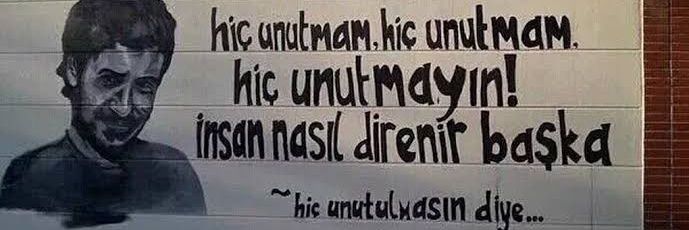 hiç unutmam, hiç unutmam,
hiç unutmayın!
insan nasıl direnir başka
~hiç unutulmasın diye...